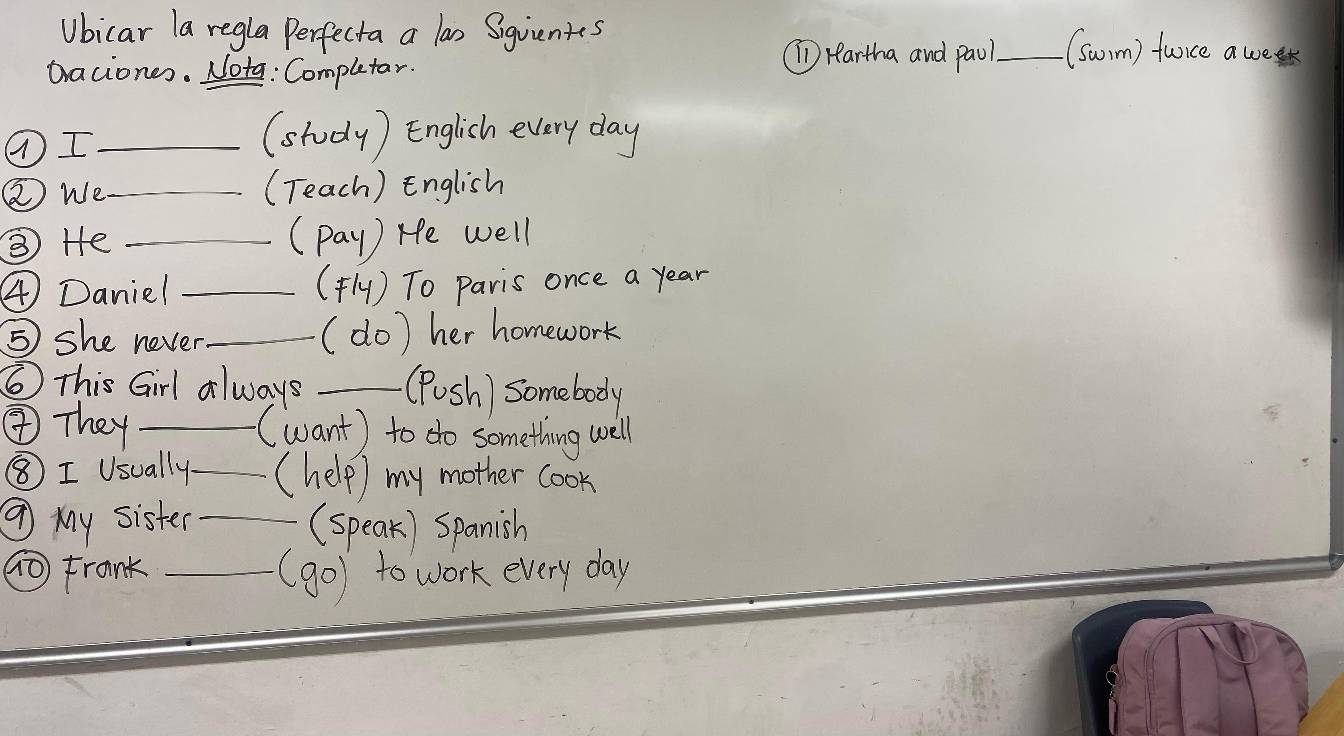 Ubicar la regla Perfecta a las Siguientes
Oraciones. Nota: Completar.
① I ______ (study) English every day
② We ______ (Teach) English
③ He ______ (pay) Me well
④ Daniel ______ (Fly) To paris once a year
⑤ She never ______ (do) her homework
⑥ This Girl always ______ (Push) Somebody
⑦ They ______ (want) to do something well
⑧ I Usually ______ (help) my mother Cook
⑨ My Sister ______ (Speak) Spanish
⑩ Frank ______ (go) to work every day
⑪ Martha and paul ______ (Swim) twice a week